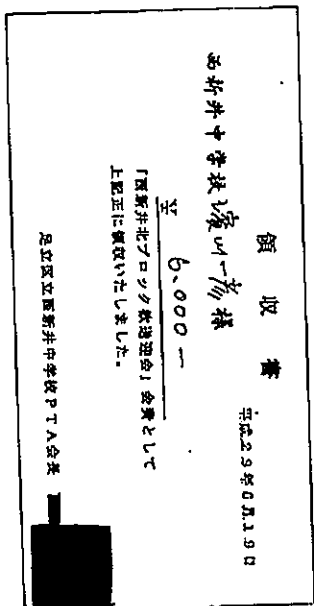 領収書
平成29年6月19日
西新井中学校 濱川一彦様
￥ 6,000 ー
「西新井北ブロック歓送迎会」会費として
上記正に領収いたしました。
足立区立西新井中学校PTA会長